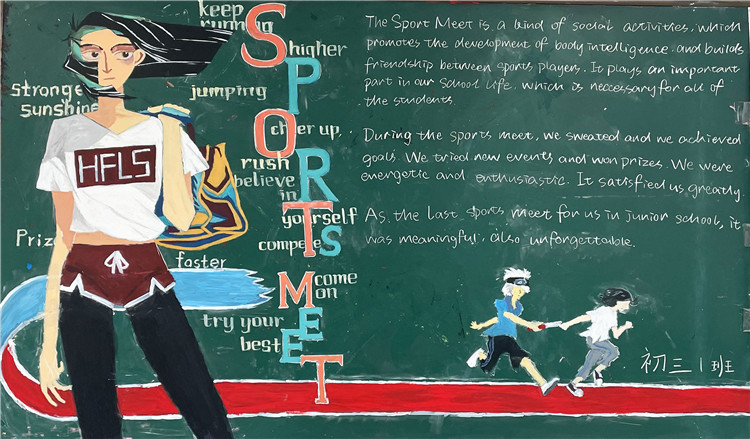 keep
running
higher
stronge
sunshine
jumping
cheer up
rush
believe
in
yourself
compete
Prize
faster
come
on
try your
best
SPORTS MEET
HFLS
The Sport Meet is a kind of social activities, which
promotes the development of body intelligence and builds
friendship between sports players. It plays an important
part in our school life, which is neccessary for all of
the students
During the sports meet, we sweated and we achieved
goals. We tried new events and won prizes. We were
energetic and enthusiastic. It satisfied us greatly
As the last sports meet for us in junior school, it
was meaningful, also unforgettable.
初三1班